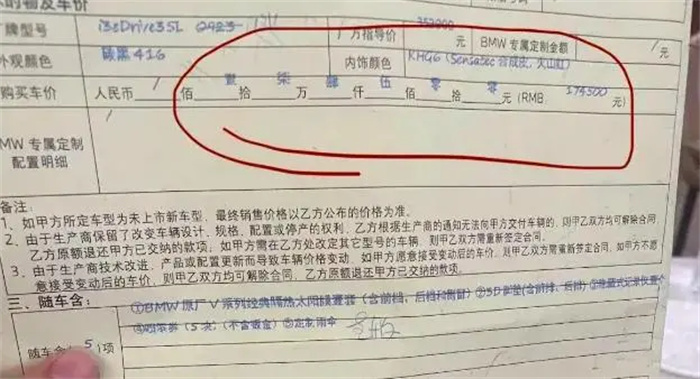 的物及车价
厂牌型号 i3eDrive35L 厂方指导价 353900 元 BMW 专属定制金额 / 元
外观颜色 碳黑416 内饰颜色 KHG6 (Sensatec 合成皮，火山红)
购买车价 人民币 / 佰 壹 拾 柒 万 肆 仟 伍 佰 零 拾 零 元 (RMB 174500 )
MW 专属定制 /
配置明细
备注：
1、如甲方所定车型为未上市新车型，最终销售价格以乙方公布的价格为准。
2、由于生产商保留了改变车辆设计、规格、配置或停产的权利，乙方根据生产商的通知无法向甲方交付车辆的，则甲乙双方均可解除合同，
乙方原额退还甲方已交纳的款项；如甲方需在乙方处改定其它型号的车辆，则甲乙双方需重新签定合同。
3、由于生产商技术改进、产品或配置更新而导致车辆价格变动、如甲方愿意接受变动后的车价，则甲乙双方需重新签定合同、如甲方不愿
意接受变动后的车价，则甲乙双方均可解除合同、乙方原额退还甲方已交纳的款项。
三、随车含：
①BMW原厂V系列经典隔热太阳膜壹套（含前档、后档和侧窗）②5D脚垫（含前排、后排）③隐藏式记录仪壹个
随车含 5 项 （5次）（不含钣金）⑤定制雨伞